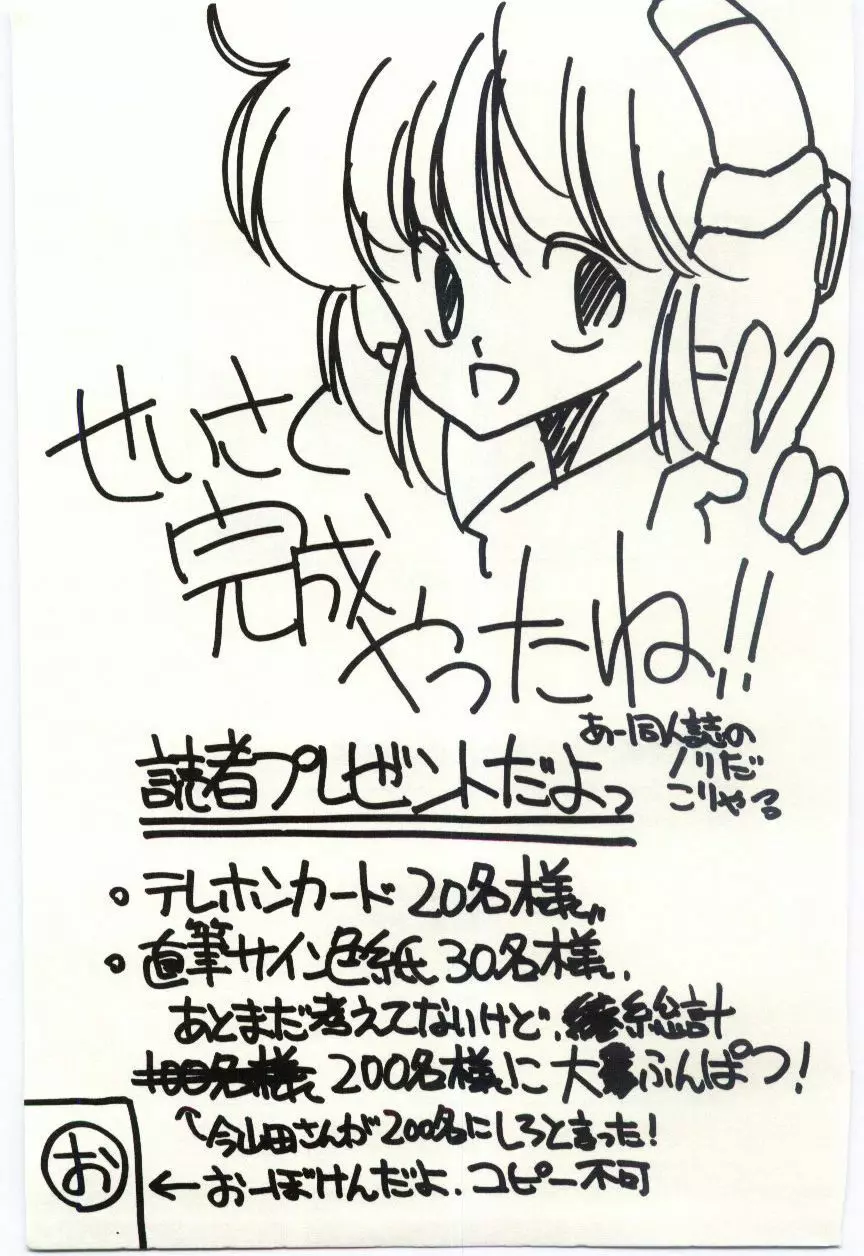 せいさく
完成
やったね!!
あー同人誌の
ノリだ
こりゃる
読者プレゼントだよっ
。テレホンカード 20名様
。直筆サイン色紙 30名様.
あとまだ考えてないけど、総計
100名様 200名様に 大ふんぱつ!
↑今山田さんが200名にしろと言った!
お ←おーぼけんだよ.コピー不可